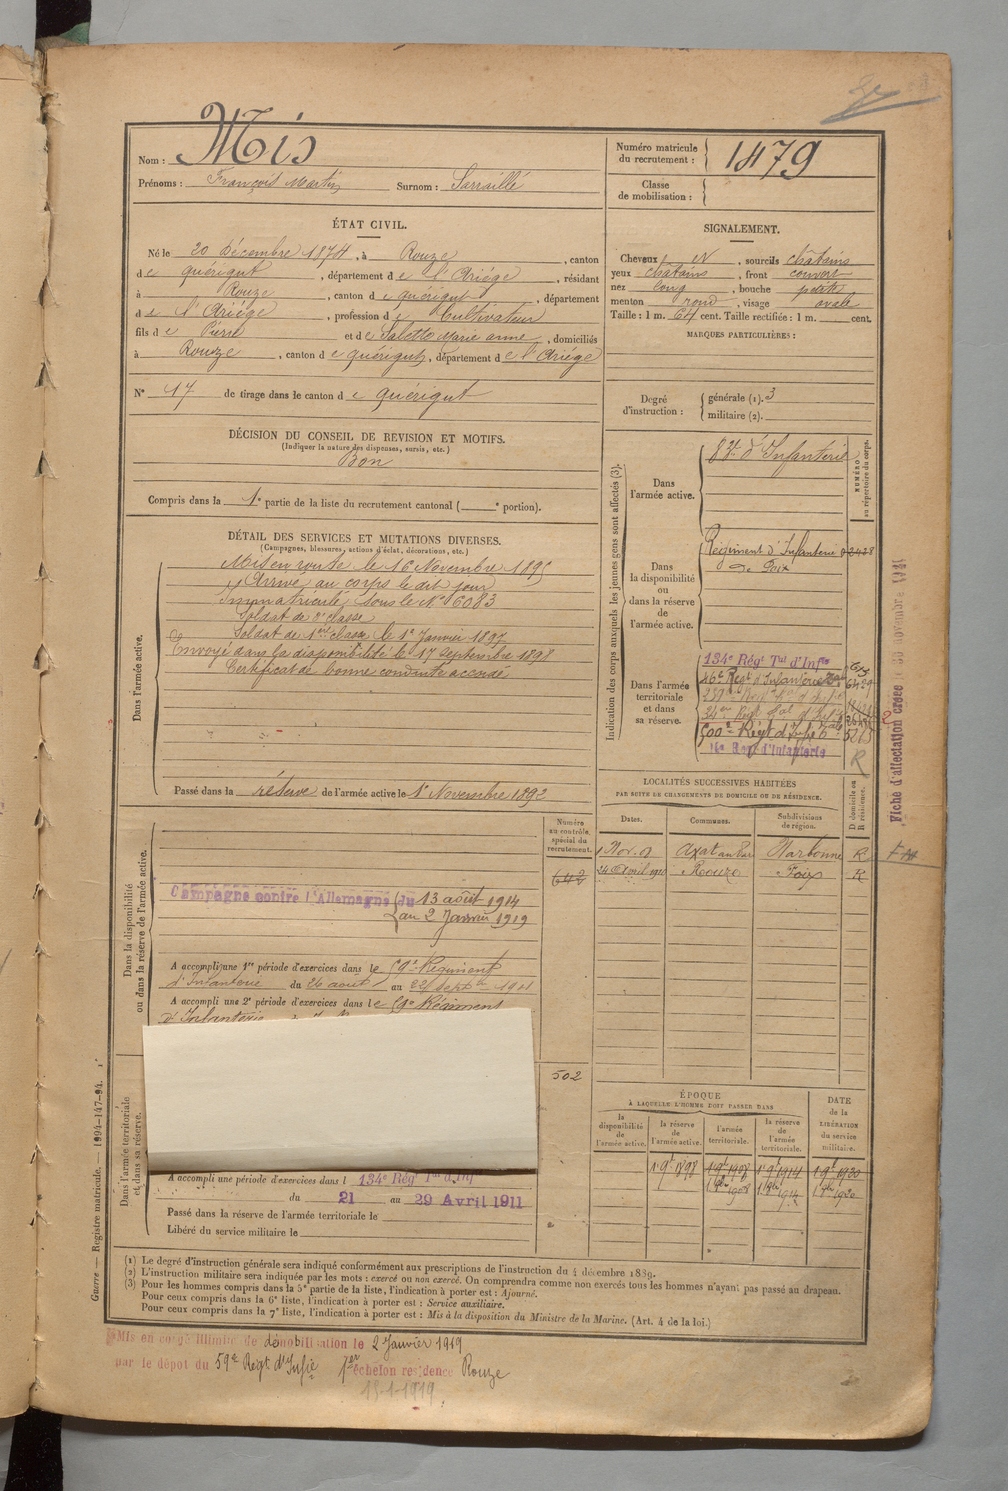 Nom : Mis
Prénoms : François Martin Surnom : Sarraillé
Numéro matricule du recrutement : 1479
Classe de mobilisation :
ÉTAT CIVIL.
Né le 20 Décembre 1874, à Rouze, canton
de quérigut, département de l'Ariége, résidant
à Rouze, canton de quérigut, département
de l'Ariége, profession de Cultivateur
fils de Pierre et de Salette Marie anne, domiciliés
à Rouze, canton de quérigut, département de l'Ariége
N° 17 de tirage dans le canton de quérigut
SIGNALEMENT.
Cheveux N, sourcils châtains
yeux châtains, front couvert
nez long, bouche petite
menton rond, visage ovale
Taille : 1 m. 64 cent. Taille rectifiée : 1 m. cent.
MARQUES PARTICULIÈRES :
Degré d'instruction : générale (1). 3
militaire (2).
DÉCISION DU CONSEIL DE REVISION ET MOTIFS.
(Indiquer la nature des dispenses, sursis, etc.)
Bon
Compris dans la 1e partie de la liste du recrutement cantonal ( e portion).
DÉTAIL DES SERVICES ET MUTATIONS DIVERSES.
(Campagnes, blessures, actions d'éclat, décorations, etc.)
Dans l'armée active.
Mis en route le 16 Novembre 1895
Arrivé au corps le dit jour
Immatriculé sous le N° 6083
Soldat de 2e classe
Soldat de 1ere classe le 1e Janvier 1897
Envoyé dans la disponibilité le 17 septembre 1898
Certificat de bonne conduite accordé
Passé dans la réserve de l'armée active le 1e Novembre 1892
Indication des corps auxquels les jeunes gens sont affectés (3).
NUMÉRO au répertoire du corps.
Dans l'armée active.
d'Infanterie
Dans la disponibilité ou dans la réserve de l'armée active.
Régiment d'Infanterie
de Foix
Dans l'armée territoriale et dans sa réserve.
134e Régt Tal d'Infie
500e Régt d'Infie
16e Regt d'Infanterie
R
Fiche d'affectation créée le 30 novembre
LOCALITÉS SUCCESSIVES HABITÉES
PAR SUITE DE CHANGEMENTS DE DOMICILE OU DE RÉSIDENCE.
Dates. Communes. Subdivisions de région. D domicile ou R résidence.
1 Nov. Axat Narbonne R
24 Avril Rouze Foix R
Numéro au contrôle spécial du recrutement.
642
Dans la disponibilité ou dans la réserve de l'armée active.
Campagne contre l'Allemagne du 13 août 1914
au 2 Janvier 1919
A accompli une 1re période d'exercices dans le 59e Régiment
d'Infanterie du 26 août au 22 septbre 1901
A accompli une 2e période d'exercices dans le 59e Régiment
d'Infanterie
502
Dans l'armée territoriale et dans sa réserve.
A accompli une période d'exercices dans l 134e Régt Tal d'Inf
du 21 au 29 Avril 1911
Passé dans la réserve de l'armée territoriale le
Libéré du service militaire le
ÉPOQUE
À LAQUELLE L'HOMME DOIT PASSER DANS
la disponibilité de l'armée active. la réserve de l'armée active. l'armée territoriale. la réserve de l'armée territoriale.
DATE de la LIBÉRATION du service militaire.
1 9bre 1898 1 9bre 1908 1 9bre 1914 1 9bre 1920
(1) Le degré d'instruction générale sera indiqué conformément aux prescriptions de l'instruction du 4 décembre 1889.
(2) L'instruction militaire sera indiquée par les mots : exercé ou non exercé. On comprendra comme non exercés tous les hommes n'ayant pas passé au drapeau.
(3) Pour les hommes compris dans la 5e partie de la liste, l'indication à porter est : Ajourné.
Pour ceux compris dans la 6e liste, l'indication à porter est : Service auxiliaire.
Pour ceux compris dans la 7e liste, l'indication à porter est : Mis à la disposition du Ministre de la Marine. (Art. 4 de la loi.)
Guerre — Registre matricule. — 1994-147-94.
Mis en congé illimité de démobilisation le 2 Janvier 1919
par le dépôt du 59e Régt d'Infie 1er échelon residence Rouze
15-1-1919